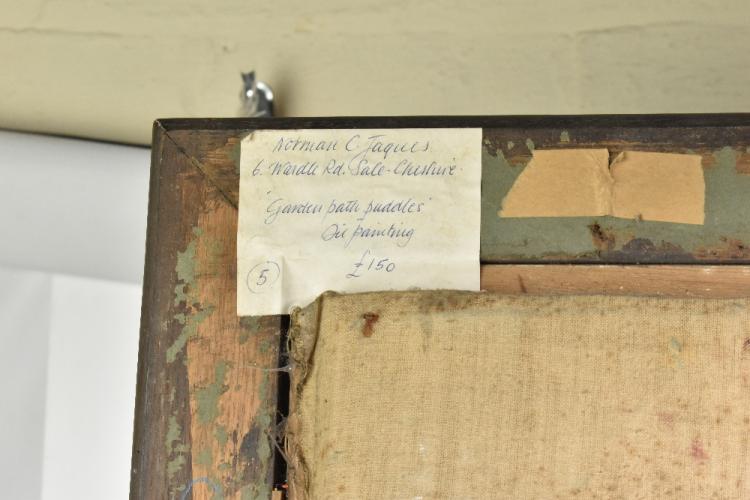 Norman C. Jaques.
6. Wardle Rd. Sale - Cheshire.
'Garden path puddles'
Oil painting
5 £150